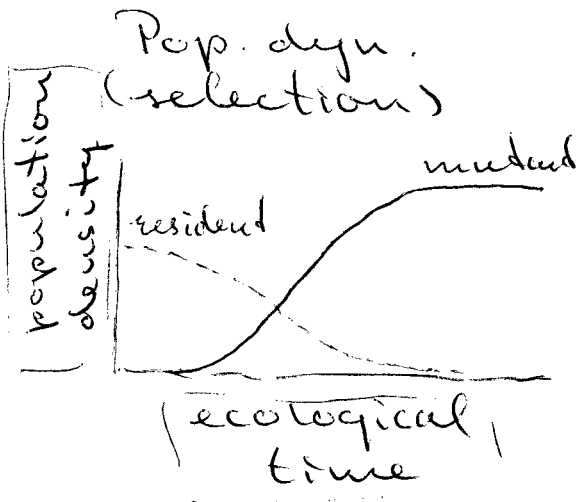 Pop. dyn.
(selection)
population
density
mutant
resident
ecological
time